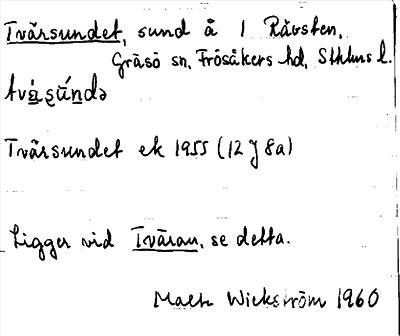 Tvärsundet, sund å 1 Rävsten,
Gräsö sn, Frösåkers hd, Sthlms l.
Tvärsundet ek 1955 (12 J 8a)
Ligger vid Tväran, se detta.
Mats Wickström 1960